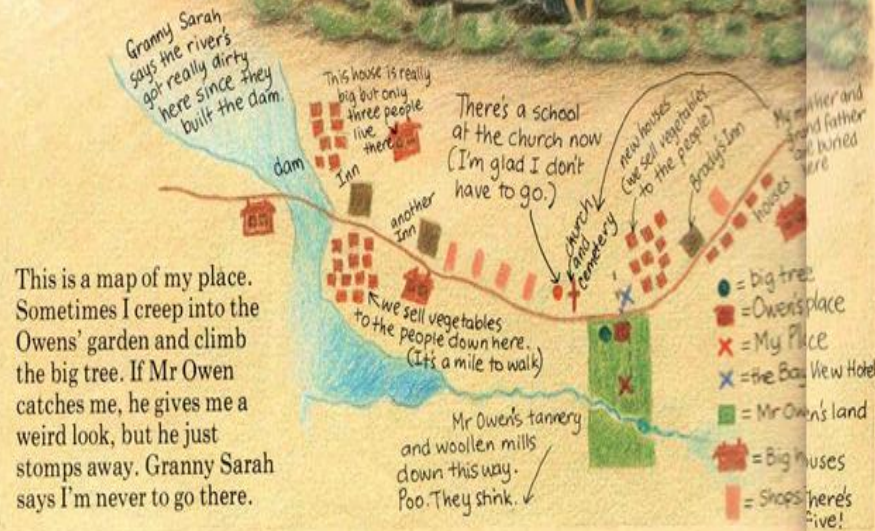 Granny Sarah
says the river's
got really dirty
here since they
built the dam.
This house is really
big but only
three people
live
there
dam
Inn
another
Inn
There's a school
at the church now
(I'm glad I don't
have to go.)
church
and
cemetery
new houses
(we sell vegetables
to the people)
Brady's Inn
My mother and
grand father
are buried
here
houses
we sell vegetables
to the people down here.
(It's a mile to walk)
Mr Owen's tannery
and woollen mills
down this way.
Poo. They stink.
This is a map of my place.
Sometimes I creep into the
Owens' garden and climb
the big tree. If Mr Owen
catches me, he gives me a
weird look, but he just
stomps away. Granny Sarah
says I'm never to go there.
= big tree
= Owen's place
= My Place
= the Bay View Hotel
= Mr Owen's land
= Big houses
= Shops There's
five!